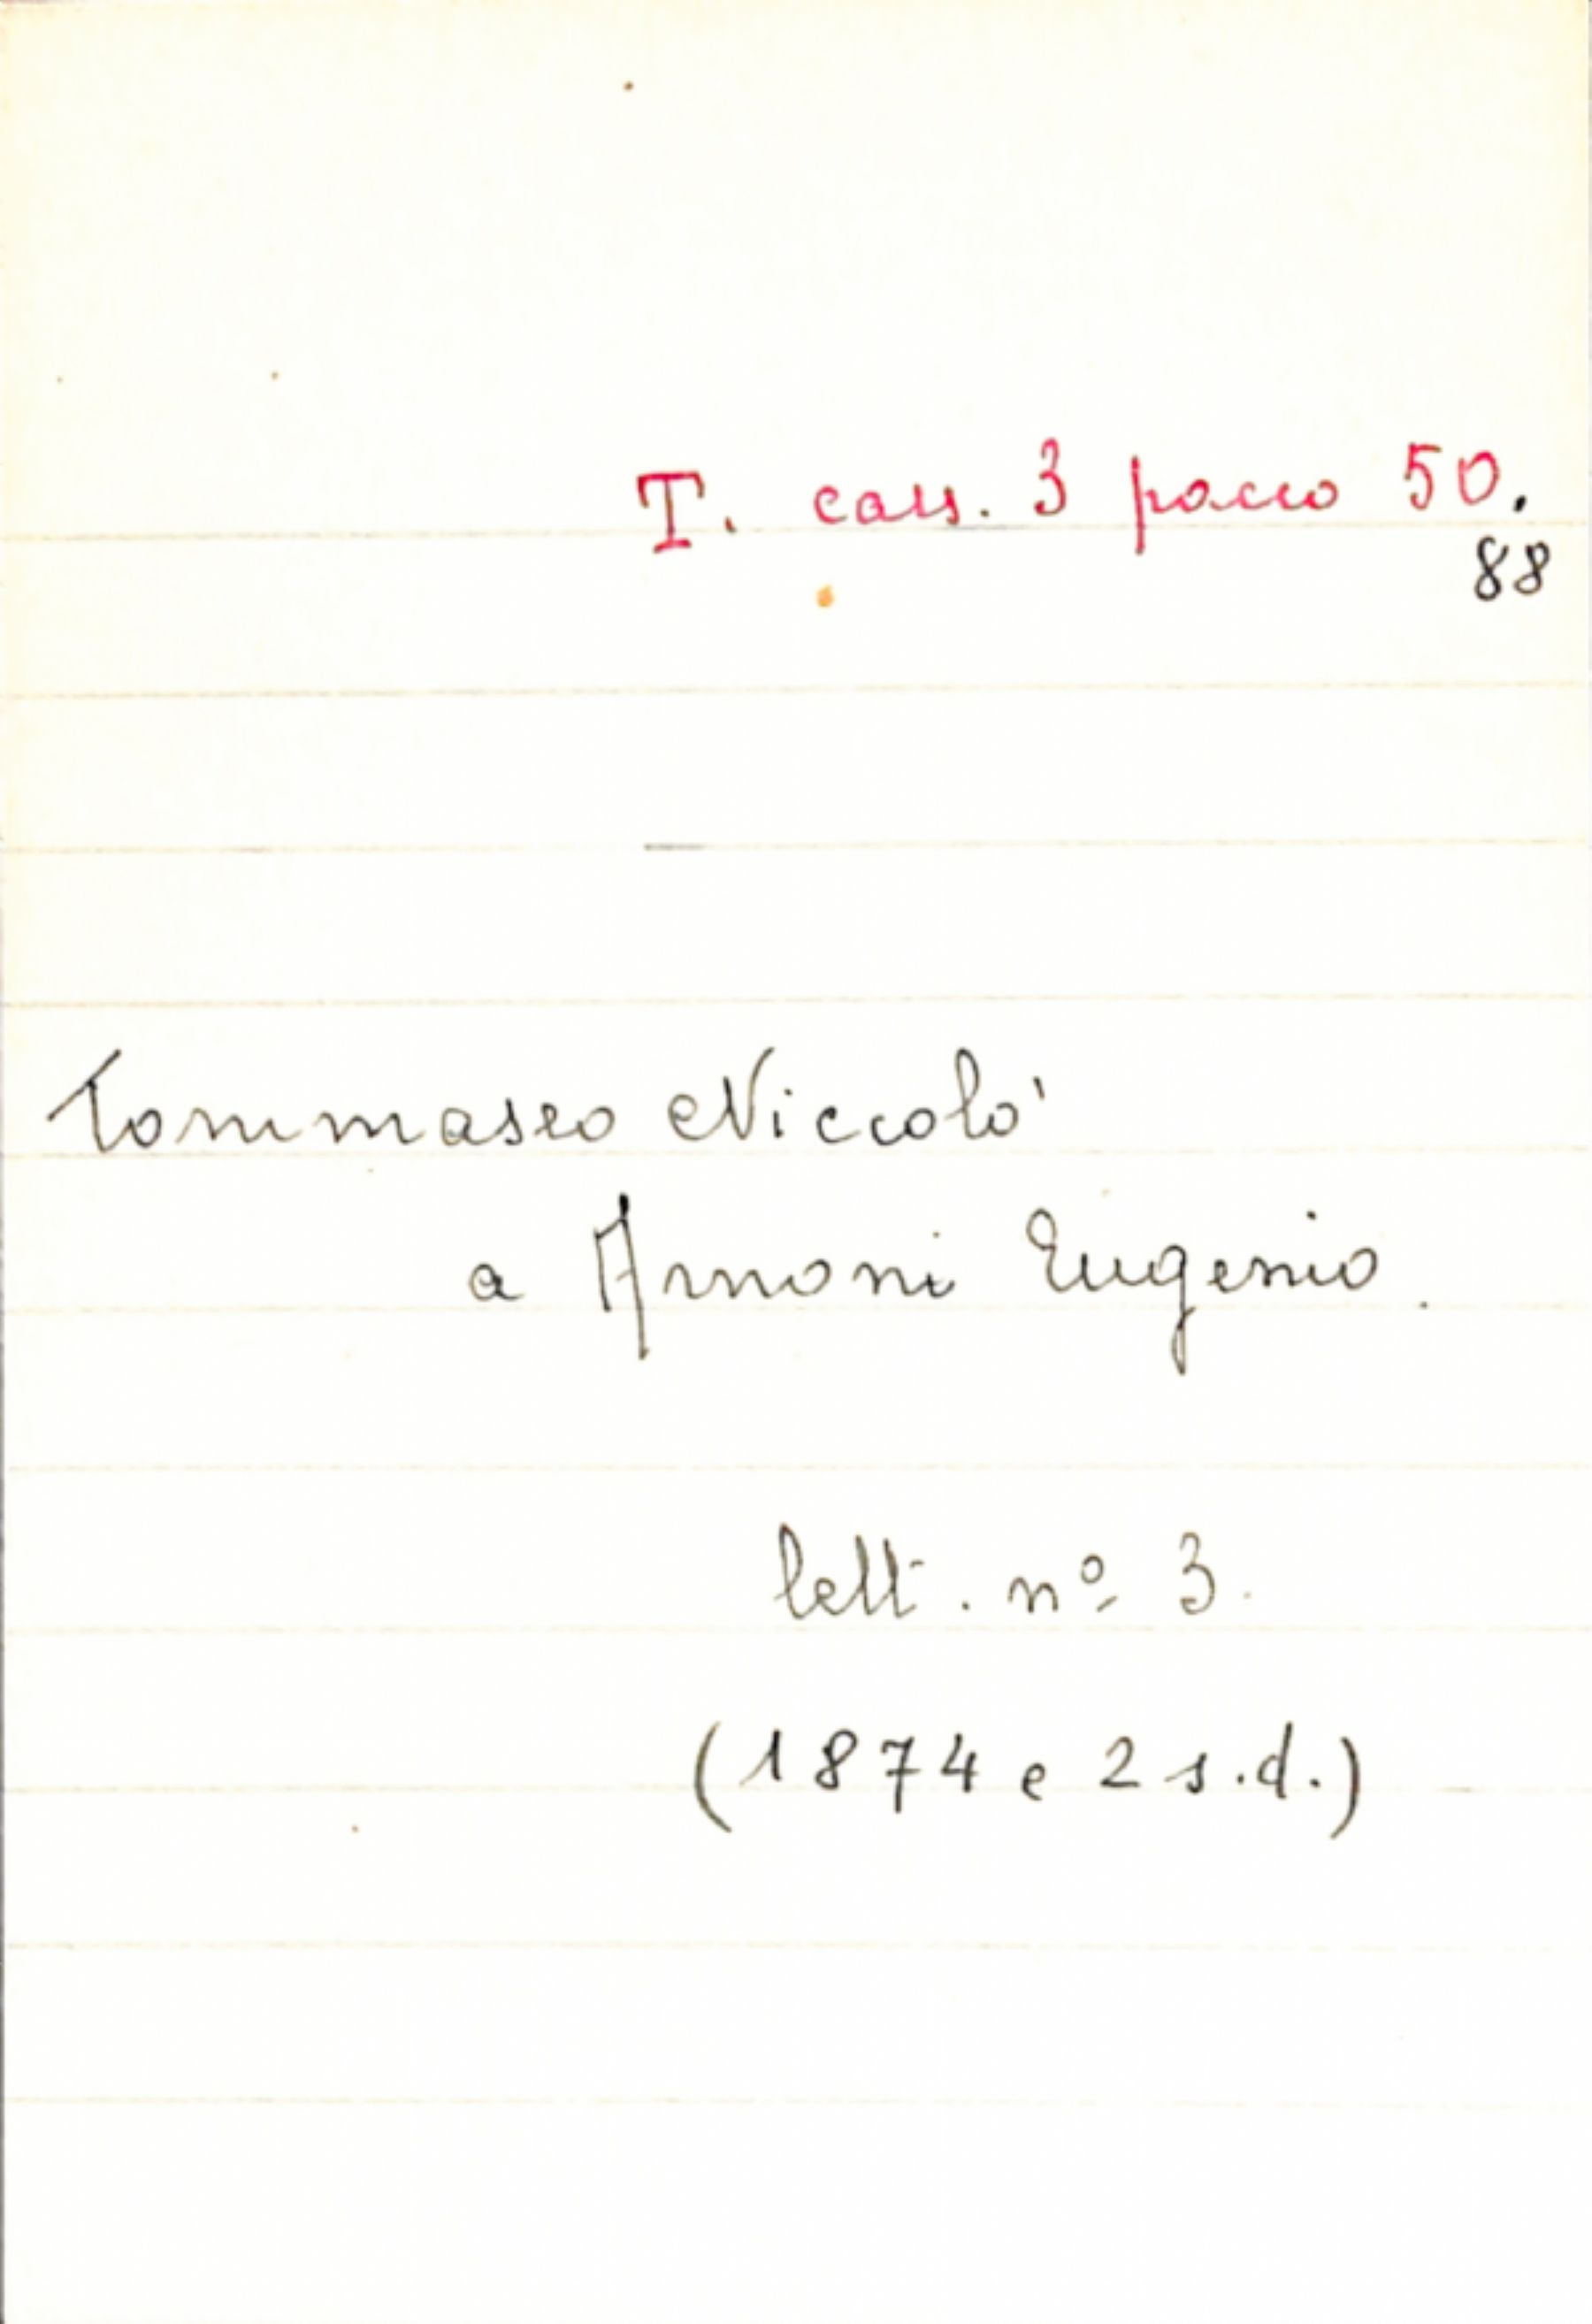 T. cass. 3 pacco 50.
88
Tommaseo Niccolo'
a Arnoni Eugenio.
lett. nº 3.
(1874 e 2 s.d.)